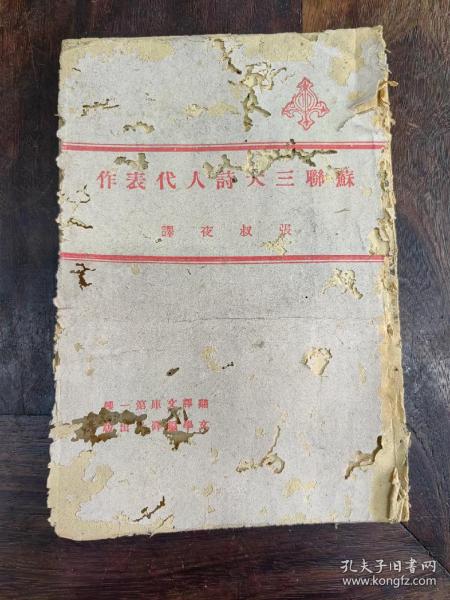 蘇聯三大詩人代表作
張叔夜譯
翻譯文庫第一種
文學
孔夫子旧书网
www.kongfz.com